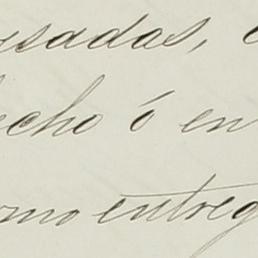 usadas,
echo ó en
omo entreg